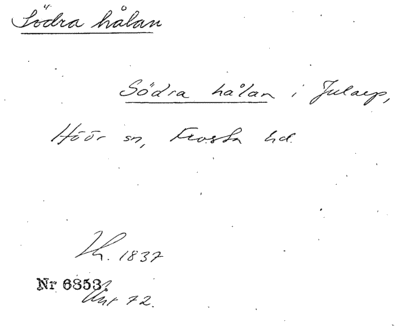 Södra hålan
Södra hålan i Jularp,
Höör sn, Frosta hd.
1837
Nr 6853.
72.